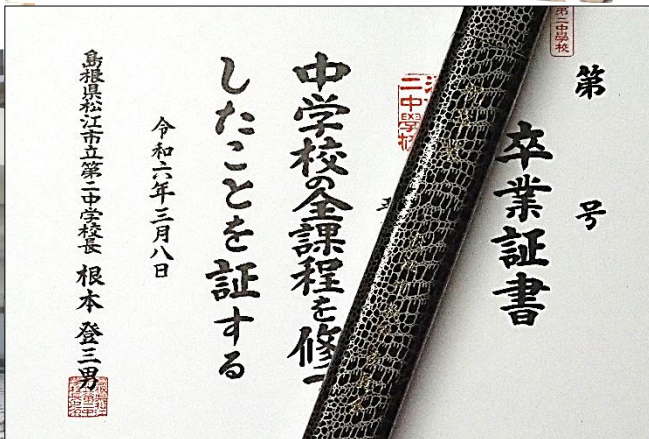 第　号
卒業証書
中学校の全課程を修
したことを証する
令和六年三月八日
島根県松江市立第二中学校長 根本登三男
第二中學校